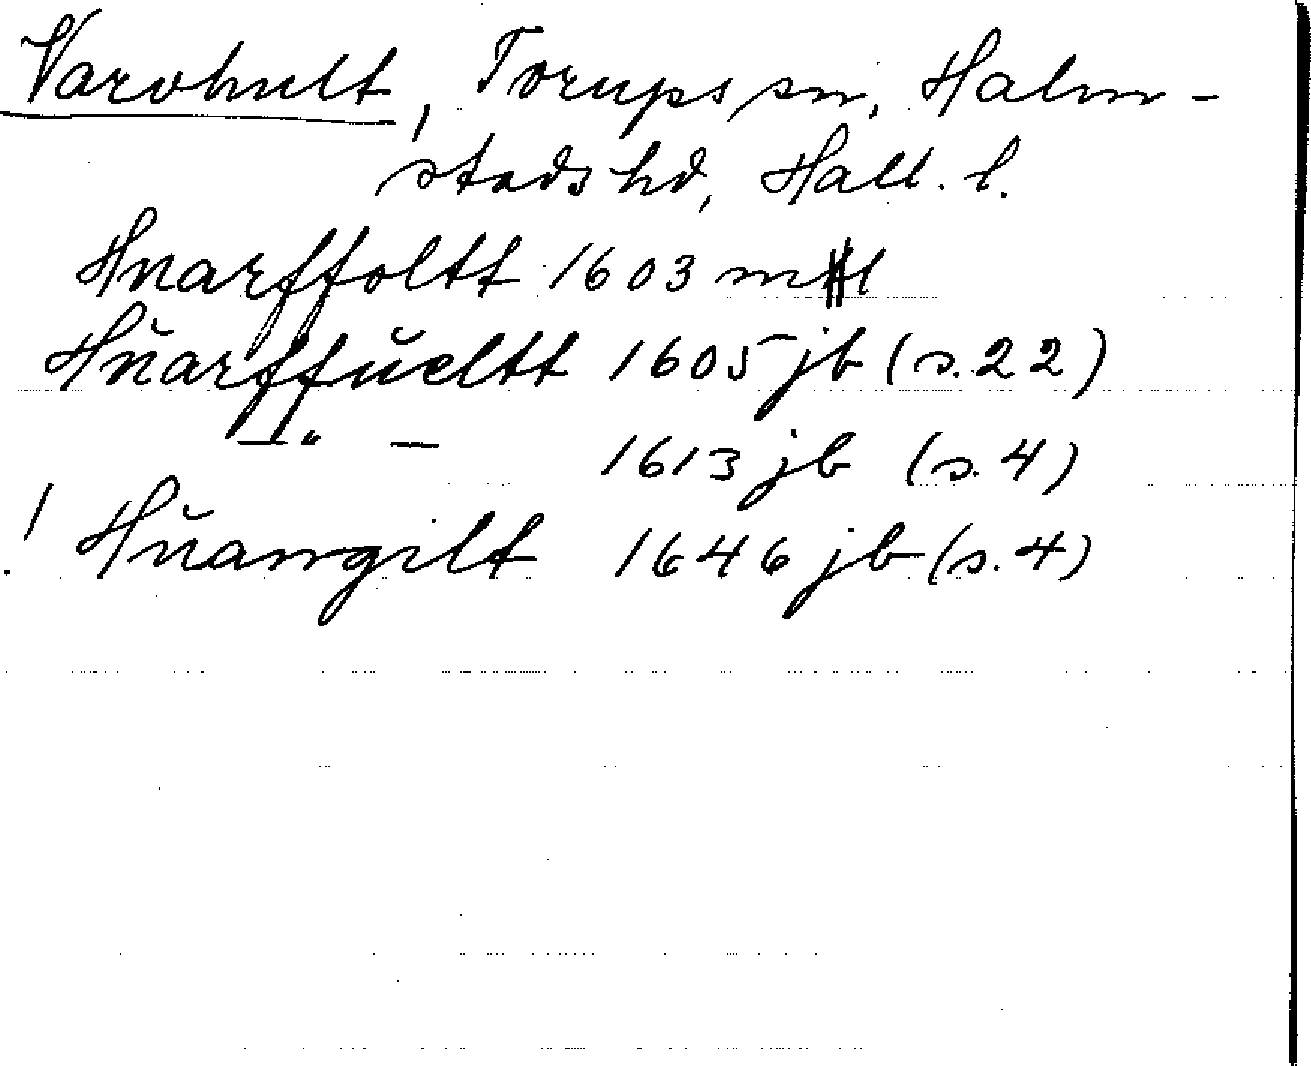 Varvhult, Torups sn, Halm-
stads hd, Hall. l.
Huarffoltt 1603 mtl
Hŭarffŭeltt 1605 jb (s. 22)
—"— 1613 jb (s. 4)
! Hŭarngilt 1646 jb (s. 4)